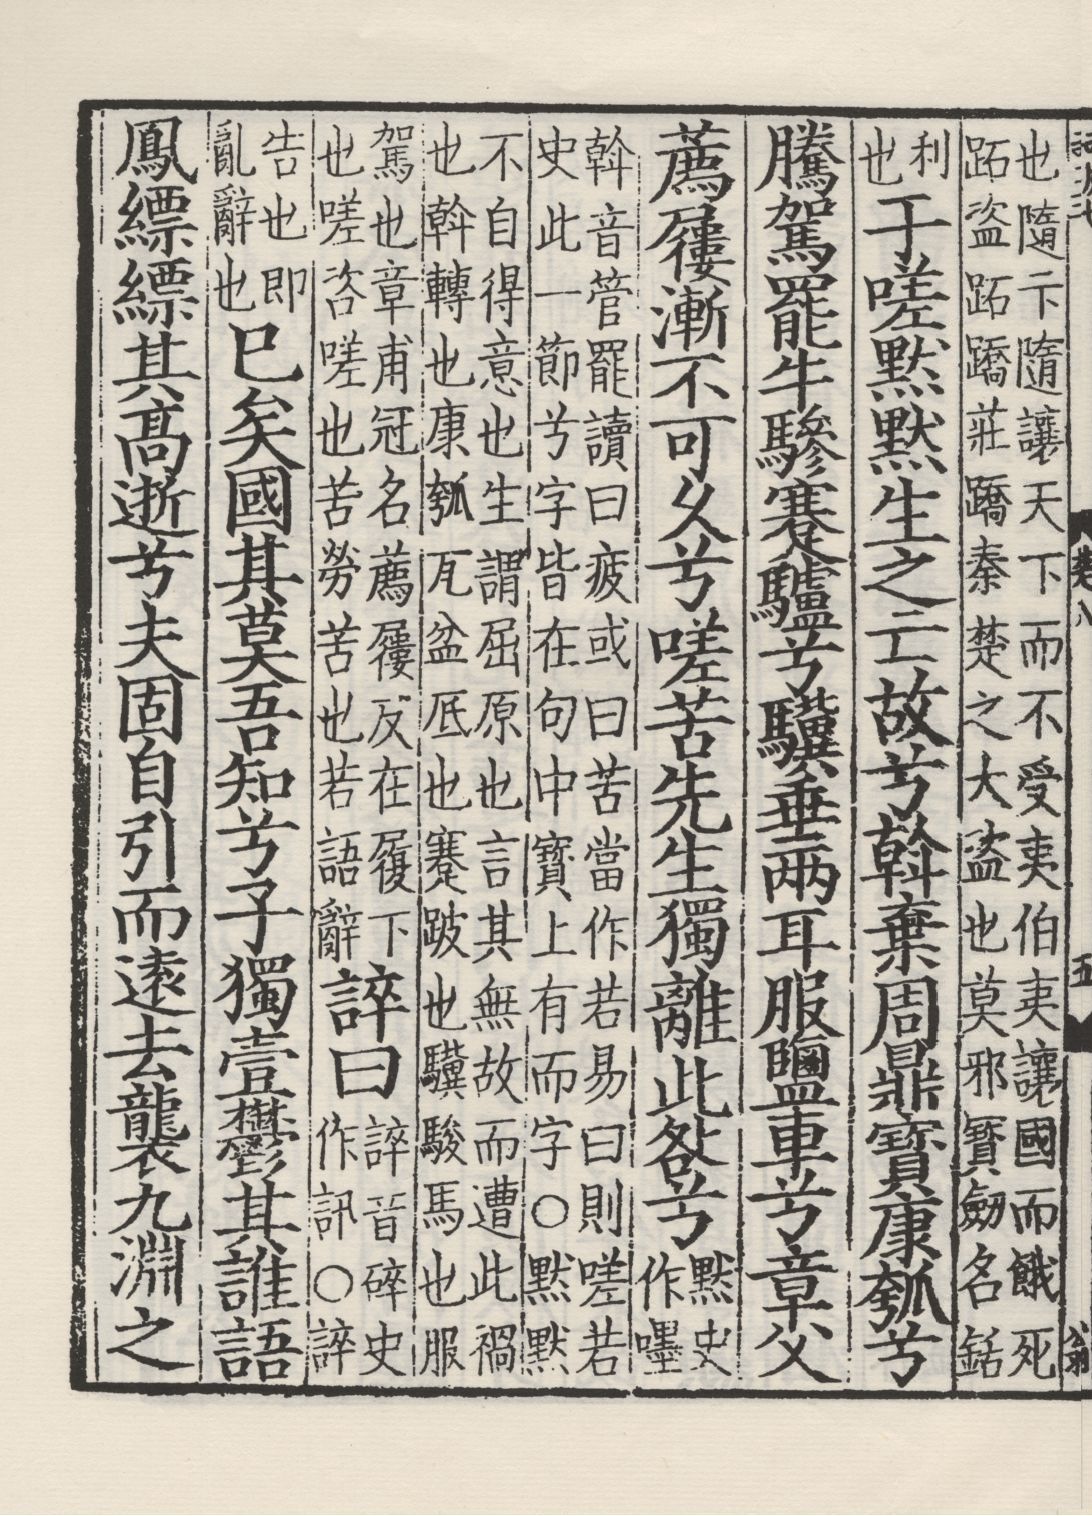 也隨卞隨讓天下而不受夷伯夷讓國而餓死
跖盜跖蹻莊蹻秦楚之大盜也莫邪寶劒名銛
利
也
于嗟默默生之亡故兮斡棄周鼎寶康瓠兮
騰駕罷牛驂蹇驢兮驥垂兩耳服鹽車兮章父
薦屨漸不可久兮嗟苦先生獨離此咎兮
默史
作嚜
斡音管罷讀曰疲或曰苦當作若易曰則嗟若
史此一節兮字皆在句中寳上有而字○默默
不自得意也生謂屈原也言其無故而遭此禍
也斡轉也康瓠瓦盆厎也蹇跛也驥駿馬也服
駕也章甫冠名薦屨反在履下
也嗟咨嗟也苦勞苦也若語辭
誶曰
誶音碎史
作訊○誶
告也即
亂辭也
已矣國其莫吾知兮子獨壹鬱其誰語
鳳縹縹其高逝兮夫固自引而遠去襲九淵之
卷八
五